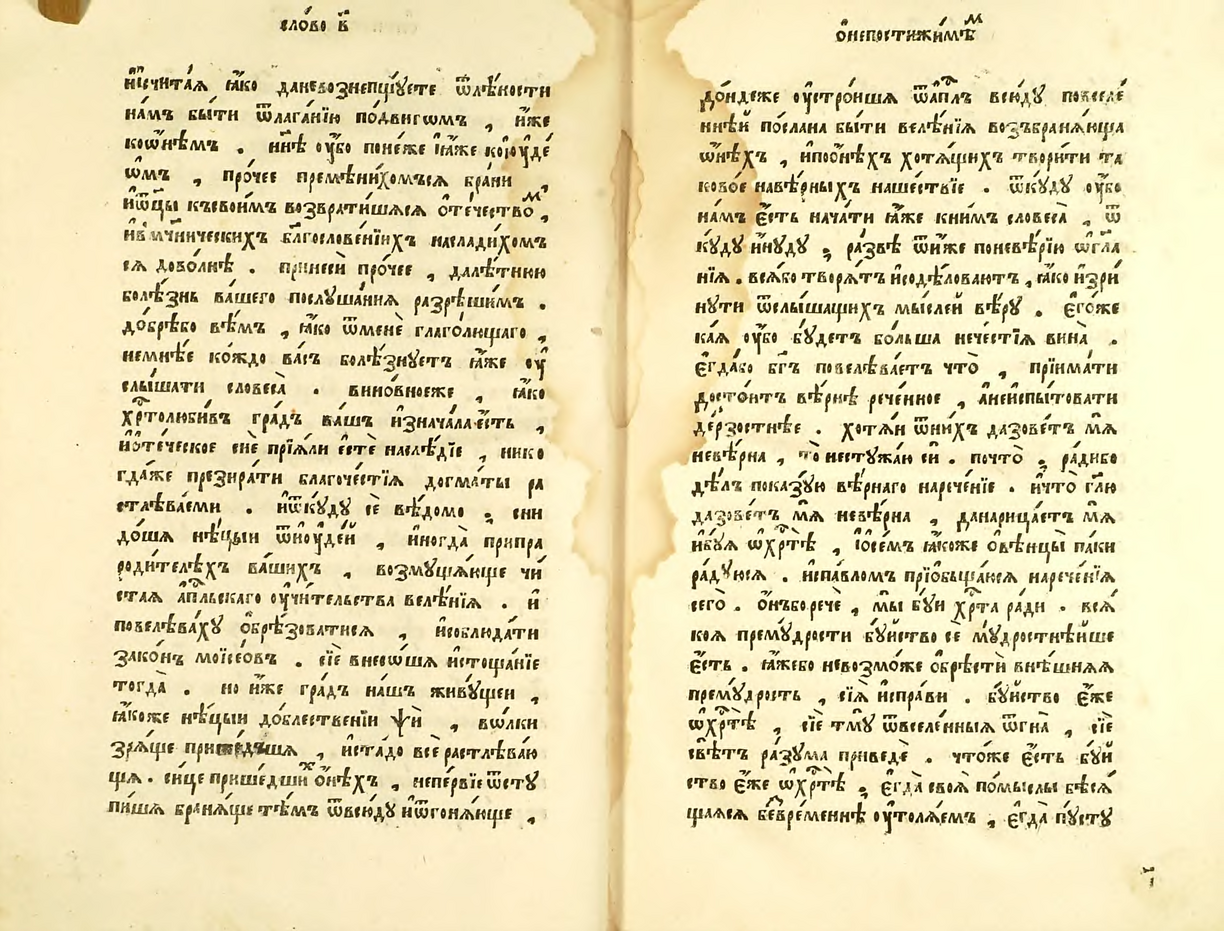 сло́во в҃
нⷭ҇счита́ѧ ꙗ҆́ко даневознепщꙋ́ете ѿлѣ́ности
на́мъ бы́ти ѿлага́нїю по́двигѡмъ , и҆́же
коѡ҆нѣ́мъ . нн҃ѣ ᲂу҆́бо поне́же ꙗ҆́же коїꙋде́
ѡ҆мъ , про́чее премѣни́хомъсѧ бра́ни ,
и҆ѻ҆вцы къевои́мъ возврати́шѧсѧ ѻ҆те́чествоⷨ ,
и҆в мч҃ническихъ бл҃гослове́нїихъ наслади́хомъ
сѧ дово́лнѣ . принесѝ про́чее , далѣ́тнюю
болѣ́знь ва́шего послꙋша́нїѧ разрѣши́мъ .
до́брѣбо вѣ́мъ , ꙗ҆́ко ѿменѐ глаго́лющаго ,
немнѣ́е ко́ждо ва́съ болѣ́знꙋетъ ꙗ҆́же ᲂу҆
слы́шати словеса̀ . вино́вноеже , ꙗ҆́ко
хрⷭ҇толюби́въ гра́дъ ва́шъ и҆знача́ла є҆́сть ,
и҆ѻ҆те́ческое сиѐ прїѧ́ли є҆стѐ наслѣ́дїе , нико
гда́же презира́ти благоче́стїѧ догма́ты ра
стлѣва́еми . и҆ѿкꙋ́дꙋ сѐ вѣ́домо ; сни
до́шѧ нѣ́цыи ѿїꙋде́й , и҆ногда̀ припра
роди́телѣхъ ва́шихъ , возмꙋща́юще чи́
стаѧ а҆пⷭ҇льскаго ᲂу҆чи́тельства велѣ́нїѧ . и҆
повелѣва́хꙋ ѻ҆брѣ́зоватисѧ , и҆соблюда́ти
зако́нъ моїсе́овъ . сїѐ внесо́шѧ и҆стоща́нїе
тогда̀ . но и҆́же гра́дъ на́шъ живꙋ́щеи ,
ꙗ҆́коже нѣ́цыи до́блественїи ѱѝ , во́лки
зрѧ́ще прише́дъшѧ , и҆ста́до всѐ растлѣва́ю
щѧ . си́це прише́дшиⷯ ѻ҆́нѣхъ , непе́рвїе ѿстꙋ
пи́шѧ бранѧ́ще тѣ́мъ ѿвсю́дꙋ и҆ѿгонѧ́юще ,
ѡ҆непостижи́мѣⷨ
до́ндеже ᲂу҆стро́ишѧ ѿа҆пⷭ҇лъ всю́дꙋ повселе́
ннѣй по́слана бы́ти велѣ́нїѧ возъбранѧ́юща
ѡ҆́нѣхъ , и҆поѻ҆́нѣхъ хотѧ́щихъ твори́ти та
ково́е навѣ́рныхъ наше́ствїе . ѿкꙋ́дꙋ ᲂу҆́бо
на́мъ є҆́сть нача́ти ꙗ҆́же кни́мъ словеса̀ , ѿ
кꙋ́дꙋ и҆нꙋ́дꙋ ; ра́звѣ ѿи҆́же поневѣ́рїю ѡ҆гла
нїѧ . всѧ́бо творѧ́тъ и҆содѣ́ловаютъ , ꙗ҆́ко и҆зри́
нꙋти ѿслы́шащихъ мы́слей вѣ́рꙋ . є҆гѡ́же
ка́ѧ ᲂу҆́бо бꙋ́детъ бо́льша нече́стїѧ вина̀ .
є҆гда́бо бг҃ъ повелѣва́етъ что̀ , прїима́ти
досто́итъ вѣ́рнѣ рече́нное , а҆неи҆спы́товати
де́рзостнѣе . хотѧ́и ѿни́хъ дазове́тъ мѧ̀
невѣ́рна , то̀ нестꙋжа́ю си . почто̀ ; ра́дибо
дѣ́лъ показꙋ́ю вѣ́рнаго нарече́нїе . и҆что̀ гл҃ю
дазове́тъ мѧ̀ невѣ́рна , данарица́етъ мѧ̀
и҆бꙋ́ѧ ѡ҆хрⷭ҇тѣ̀ , і҆ѡ҆се́мъ ꙗ҆́коже ѻ҆вѣнцы̀ па́ки
ра́дꙋюсѧ . и҆спа́вломъ прїѻбща́юсѧ нарече́нїѧ
сего̀ . ѻ҆́нъборечѐ , мы̀ бꙋ́и хрⷭ҇та̀ ра́ди . всѧ́
коѧ премꙋ́дрости бꙋ́йство сѐ мꙋ́дростнѣйше
є҆́сть . ꙗ҆́жебо невозмо́же ѻ҆брѣстѝ внѣ́шнѧѧ
премꙋ́дрость , сїѧ̀ и҆спра́ви . бꙋ́йство є҆́же
ѡ҆хрⷭ҇тѣ̀ , сїѐ тмꙋ̀ ѿвселе́нныѧ ѿгна̀ , сїѐ
свѣ́тъ ра́зꙋма приведѐ . что́же є҆́сть бꙋ́й
ство є҆́же ѡ҆хрⷭ҇тѣ̀ ; є҆гда̀ своѧ̀ по́мыслы бѣсѧ́
щаѧсѧ безвре́меннѣ ᲂу҆толѧ́емъ , є҆гда̀ пꙋ́стꙋ